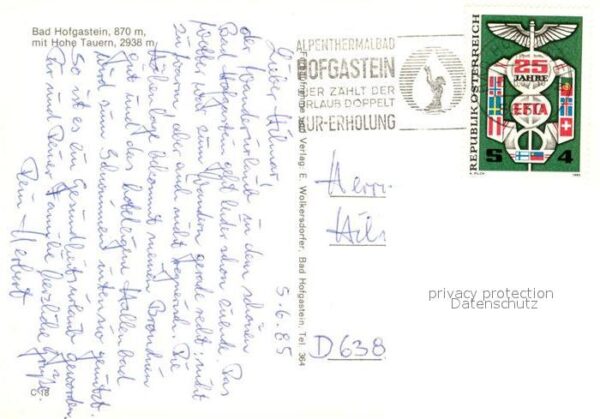 Bad Hofgastein, 870 m,
mit Hohe Tauern, 2938 m
ALPENTHERMALBAD
HOFGASTEIN
HIER ZÄHLT DER
URLAUB DOPPELT
KUR-ERHOLUNG
REPUBLIK ÖSTERREICH
25
JAHRE
EFTA
S 4
1985
Verlag E. Wolkersdorfer, Bad Hofgastein, Tel. 364
5.6.85
der Wanderurlaub in dem schönen
Bad Hofgastein geht leider schon zuende. Das
Wetter war zum Wandern gerade recht, nicht
zu warm aber auch nicht
gut und das Hallenbad
zum Schwimmen intensiv genützt.
So ist es ein Gesundheitsurlaub geworden.
Dir und Deiner Familie herzliche Grüße
Dein Herbert
Herrn
D 638
privacy protection
Datenschutz
O 18